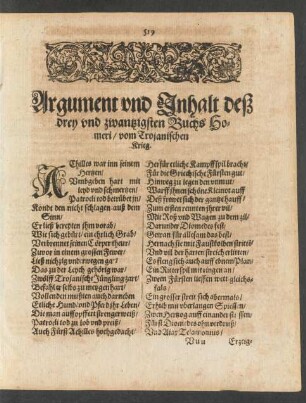 519
Argument vnd Inhalt deß
drey vnd zwantzigsten Buchs Ho-
meri / vom Trojanischen
Krieg.
AChilles war inn seinem
Hertzen /
Vmbgeben hart mit
leyd vnd schmertzen /
Patrocli tod betrübet jn /
Konde den nicht schlagen auß dem
Sinn /
Er ließ
Wie sich gebürt / ein ehrlich Grab /
Verbrennet seinen Cörper
Zuvor in einem grossen Fewr /
Ließ
Das zu der Leych gehörig war /
Zwölff Trojanisch Jüngling zart /
Befahl er
Vollenden mußten auch darneben
Etliche Hund vnd Pferd jhr Leben /
Die man auffopffert
Patrocli tod zu lob vnd preiß /
Auch Fürst Achilles hochgedacht /
Her für etliche Kampffspil bracht /
Für die Griechische Fürsten gut /
Hinweg zu legen den vnmut /
Warff jhnen schöne Kleinot auff
Deß frewet sich der gantze hauff /
Zum ersten renneten jhr
Mit Roß vnd Wagen zu dem zil /
Darunder Diomedes
Gewan für allen das best /
Hernach sie mit Fäustkolben
Vnd mit der hareten streichen litten /
Es fieng sich auch auff ebnem Plan /
Ein Ritterspil mit ringen an /
Zween Fürsten lieffen wett gleich-
fals /
Ein grosser streit sich abermals /
Erhub mit vberlangen Spiessen /
Zwen Hertzog auff einander
Fürst Diomedes ohn verdruß /
Vnd Ajax Telamonius /
Vuu
Erzeig-